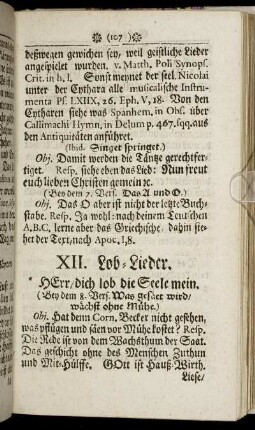 ❀ (107) ❀
deßwegen gewichen sey, weil geistliche Lieder
angespielet wurden. v. Matth. Poli Synops.
Crit. in h. l. Sonst meynet der seel. Nicolai
unter der Cythara alle musicalische Instru-
menta Ps. LXIIX, 26. Eph. V, 18. Von den
Cytharen siehe was Spanhem, in Obs. über
Callimachi Hymn, in Delum p. 467. sqq. aus
den Antiquitäten anführet.
(Ibid. Singet springet.)
Obj. Damit werden die Täntze gerechtfer-
tiget. Resp. siehe eben das Lied: Nun freut
euch lieben Christen gemein ꝛc.
(Bey dem 7. Vers. Das A und O.)
Obj. Das O aber ist nicht der letzte Buch-
stabe. Resp. Ja wohl: nach deinem Teutschen
A, B, C, lerne aber das Griechische, dahin sie-
het der Text, nach Apoc. I, 8.
XII. Lob-Lieder.
* HErr, dich lob die Seele mein.
(Bey dem 8. Vers. Was gesäet wird/
wächst ohne Mühe.)
Obj. Hat denn Corn. Becker nicht gesehen,
was pflügen und säen vor Mühe kostet? Resp.
Die Rede ist von dem Wachsthum der Saat.
Das geschicht ohne des Menschen Zuthun
und Mit-Hülffe. GOtt ist Hauß-Wirth.
Liese/